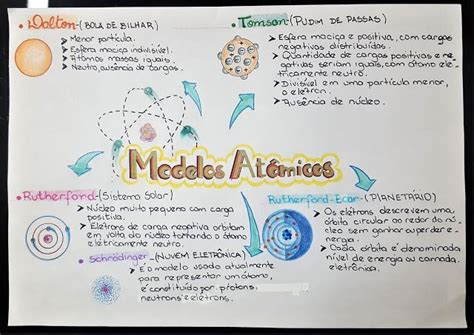 • Dalton-(BOLA DE BILHAR)
➤ Menor partícula.
➤ Esfera maciça indivisível.
➤ Átomos massas iguais.
➤ Neutro, ausência de cargas.
• Tomson-(PUDIM DE PASSAS)
➤ Esfera maciça e positiva, com cargas
negativas distribuídos.
➤ Quantidade de cargas positivas e ne
gativas seriam iguais, com átomo ele-
tricamente neutro.
➤ Divisível em uma partícula menor,
o elétron.
➤ Ausência de núcleo.
Modelos Atômicos
• Rutherford-(Sistema Solar)
➤ Núcleo muito pequeno com carga
positiva.
➤ Elétrons de carga negativa orbitam
em volta do núcleo tornando o átomo
eletricamente neutro.
• Schrödinger-(NUVEM ELETRÔNICA)
➤ É o modelo usado atualmente
para representar um átomo,
é constituído por prótons,
neutrons e elétrons.
(PLANETÁRIO)
➤ Os elétrons descrevem uma
órbita circular ao redor do nú-
cleo sem ganhar ou perder e-
nergia.
➤ Cada órbita é denominada
nível de energia ou camada
eletrônica.